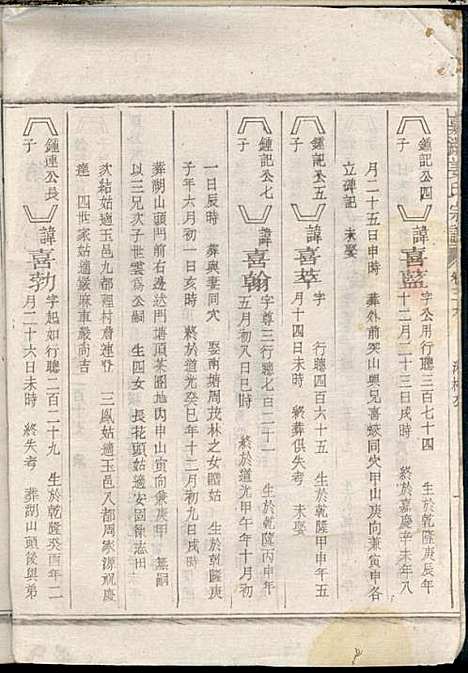 姜氏宗譜
鍾記公四子 諱喜藍 字公用行聽三百七十四 生於乾隆庚辰年十二月二十三日戌時 終於嘉慶辛未年八
月二十五日申時 葬外前突山與兄喜 同穴甲山庚向兼寅申各
立碑記 未娶
鍾記公五子 諱喜萃 字 行聽四百六十五 生於乾隆甲申年五月十四日未時 終葬俱失考 未娶
鍾記公七子 諱喜翰 字尊三行聽七百二十一 生於乾隆丙申年五月初八日巳時 終於道光甲午年十月初
一日辰時 葬與妻同穴 娶南塘周茂林之女 姑 生於乾隆庚
子年六月初一日亥時 終於道光癸巳年十二月初九日戌時
葬湖山頭門前右邊 門 頂茶園地內申山寅向兼庚甲 無嗣
以三兄次子世雲為公嗣 生四女 長花頭姑適安固 陳志田
次結姑適玉邑九都裡村詹連春 三鳳姑適玉邑八都周家源祝慶
產 四世家姑適嚴麻車嚴尚吉
鍾運公長子 諱喜勃 字起如行聽二百二十九 生於乾隆癸酉年二月二十六日未時 終失考 葬湖山頭後與弟